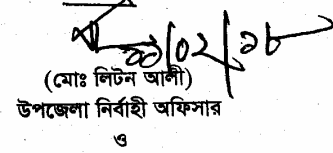 ২০/০২/১৮
(মোঃ লিটন আলী)
উপজেলা নির্বাহী অফিসার
ও